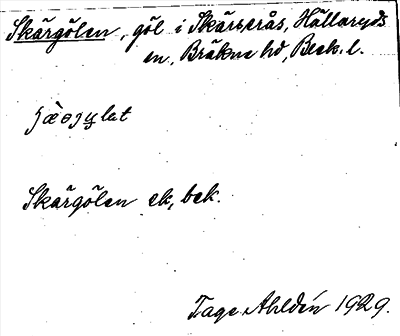 Skärgölen, göl i Skärserås, Hällaryds
en, Bräkne hd, Blek. l.
Skärgölen ek, bek.
Tage Ahldén 1929.